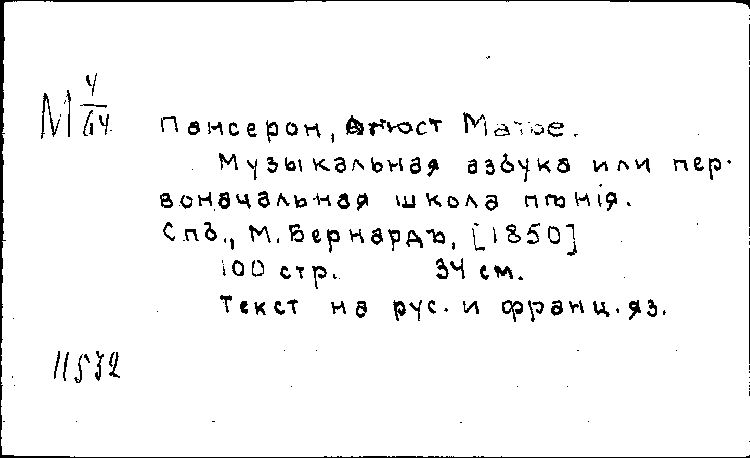 М 4/64
Пансерон, Огюст Матье.
Музыкальная азбука или пер-
воначальная школа пѣнія.
Спб., М. Бернардъ, [1850]
100 стр. 34 см.
Текст на рус. и франц. яз.
11532